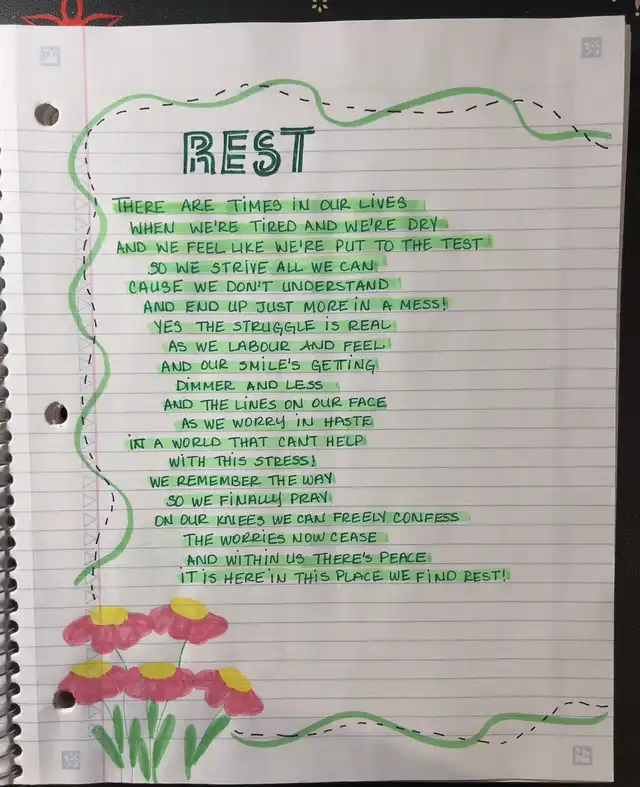 REST
THERE ARE TIMES IN OUR LIVES
WHEN WE'RE TIRED AND WE'RE DRY
AND WE FEEL LIKE WE'RE PUT TO THE TEST
SO WE STRIVE ALL WE CAN
CAUSE WE DON'T UNDERSTAND
AND END UP JUST MORE IN A MESS!
YES THE STRUGGLE IS REAL
AS WE LABOUR AND FEEL
AND OUR SMILE'S GETTING
DIMMER AND LESS
AND THE LINES ON OUR FACE
AS WE WORRY IN HASTE
IN A WORLD THAT CAN'T HELP
WITH THIS STRESS!
WE REMEMBER THE WAY
SO WE FINALLY PRAY
ON OUR KNEES WE CAN FREELY CONFESS
THE WORRIES NOW CEASE
AND WITHIN US THERE'S PEACE
IT IS HERE IN THIS PLACE WE FIND REST!